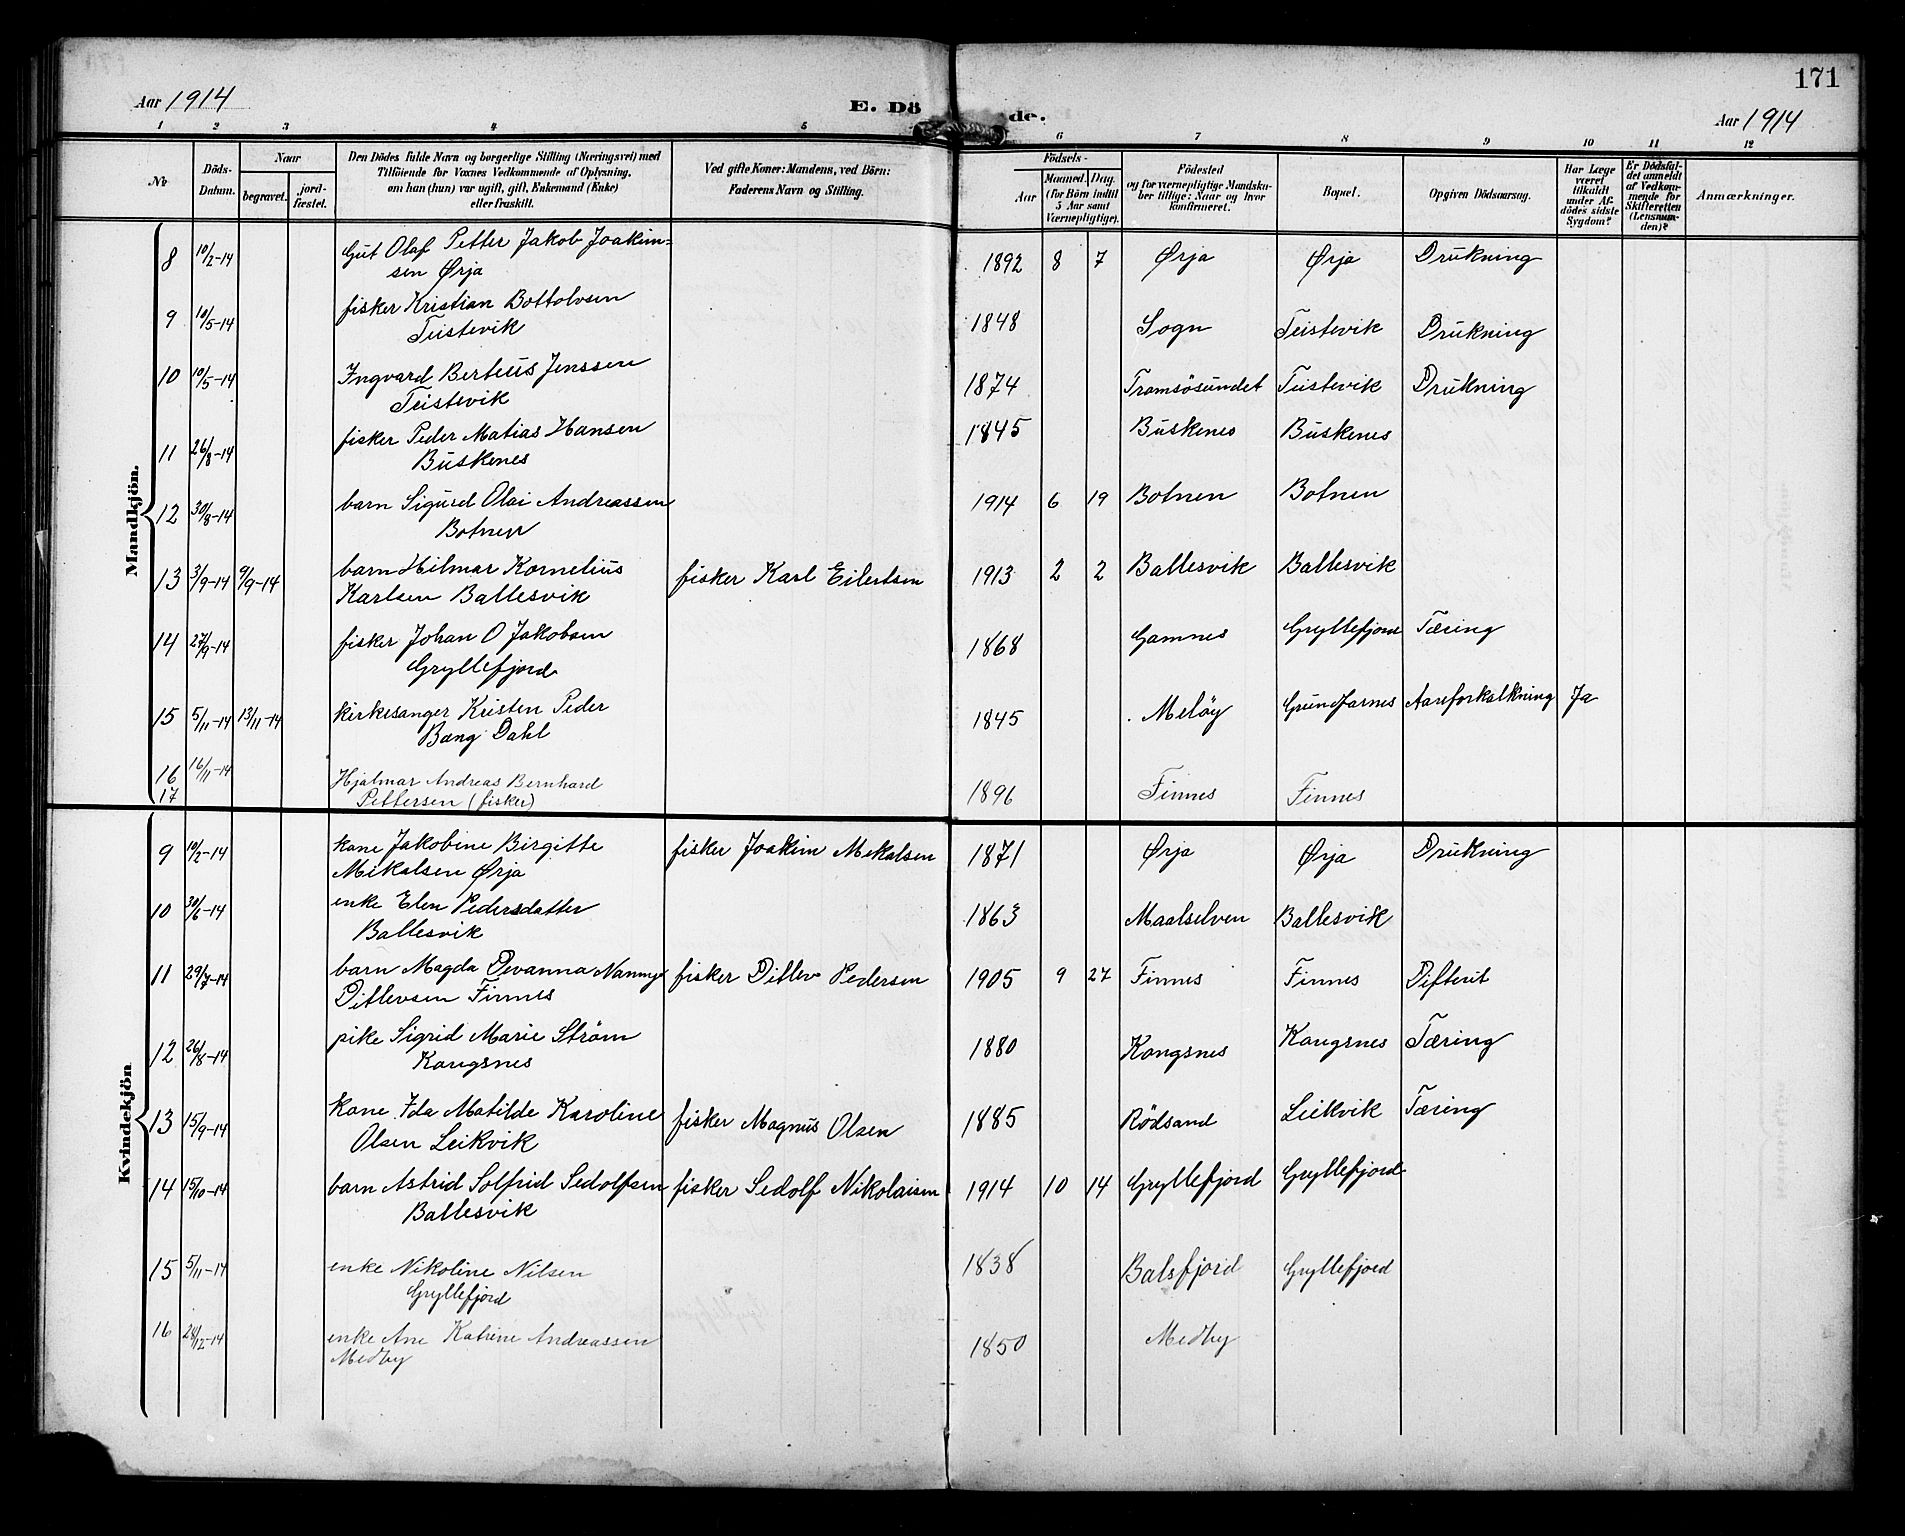 171
Aar 1914
E. Dö de.
Aar 1914
1 2 3 4 5 6 7 8 9 10 11 12
No
Döds-Datum.
Naar
begravet.
jord-fæstet.
Den Dödes fulde Navn og borgerlige Stilling (Næringsvei) med
Tilföiende for Voxnes Vedkommende af Oplysning,
om han (hun) var ugift, gift, Enkemand (Enke)
eller fraskilt.
Ved gifte Koner: Mandens, ved Börn:
Faderens Navn og Stilling.
Födsels-
Aar
Maaned. Dag.
(for Börn indtil
5 Aar samt
Værnepligtige).
Födested
og for værnepligtige Mandska-
ber tillige: Naar og hvor
konfirmeret.
Bopæl.
Opgiven Dödsaarsag.
Har Læge
været
tilkaldt
under Af-
dödes sidste
Sygdom?
Er Dödsfal-
det anmeldt
af Vedkom-
mende for
Skifteretten
(Lensmand-
den)?
Anmærkninger.
Mandkjön.
8 10/2-14 Gut Olaf Petter Jakob Joakim- 1892 8 7 Ørja Ørja Drukning
sen Ørja
9 10/5-14 fisker Kristian Bottolvsen 1848 Sogn Teistevik Drukning
Teistevik
10 10/5-14 Ingvard Berteus Jenssen 1874 Tromsösundet Teistevik Drukning
Teistevik
11 26/8-14 fisker Peder Matias Hansen 1845 Buskenes Buskenes
Buskenes
12 30/8-14 barn Sigurd Olai Andreassen 1914 6 19 Botnen Botnen
Botnen
13 3/9-14 9/9-14 barn Hilmar Kornelius fisker Karl Eilertsen 1913 2 2 Ballesvik Ballesvik
Karlsen Ballesvik
14 27/9-14 fisker Johan O Jakobsen 1868 Gamnes Gryllefjord Tæring
Gryllefjord
15 5/11-14 13/11-14 kirkesanger Kristen Peder 1845 Melöy Gundfarnes Aareforkalkning Ja
Bang Dahl
16 16/11-14 Hjalmar Andreas Bernhard 1896 Finnes Finnes
17 Pettersen (fisker)
Kvindekjön
9 10/2-14 kone Jakobine Birgitte fisker Joakim Mikalsen 1871 Ørja Ørja Drukning
Mikalsen Ørja
10 30/6-14 enke Elen Pedersdatter 1863 Maalselven Ballesvik
Ballesvik
11 29/7-14 barn Magda Devanna Nanny fisker Ditlev Pedersen 1905 9 27 Finnes Finnes Difterit
Ditlevsen Finnes
12 26/8-14 pike Sigrid Marie Ström 1880 Kongsnes Kongsnes Tæring
Kongsnes
13 15/9-14 kone Ida Matilde Karoline fisker Magnus Olsen 1885 Rödsand Leikvik Tæring
Olsen Leikvik
14 15/10-14 barn Astrid Solfrid Sedolfsen fisker Sedolf Nikolaisen 1914 10 14 Gryllefjord Gryllefjord
Ballesvik
15 5/11-14 enke Nikoline Nilsen 1838 Balsfjord Gryllefjord
Gryllefjord
16 28/12-14 enke Ane Katrine Andreassen 1850 Medby
Medby